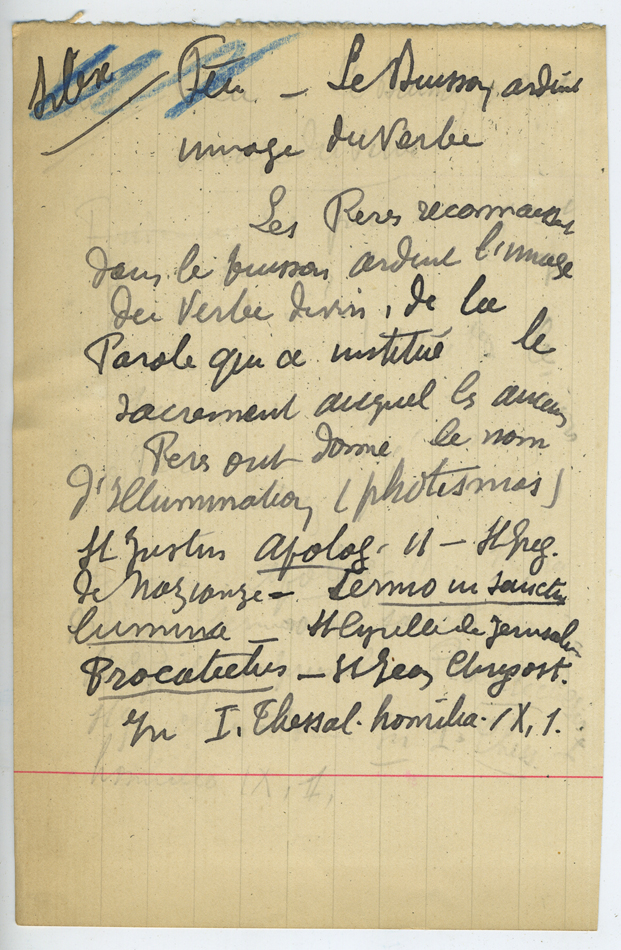 Feu — Le Buisson ardent
image du Verbe
Les Pères reconnaissent
dans le buisson ardent l'image
du Verbe divin, de la
Parole qui a institué le
sacrement auquel les anciens
Pères ont donné le nom
d'Illumination (photismos)
St Justin Apolog. II — St Greg.
de Nazianze — Sermo in sancta
lumina — St Cyrille de Jerusalem
Procatechis — St Jean Chrysost.
In I. Thessal. homilia. IX, 1.
homilia IX, 1,